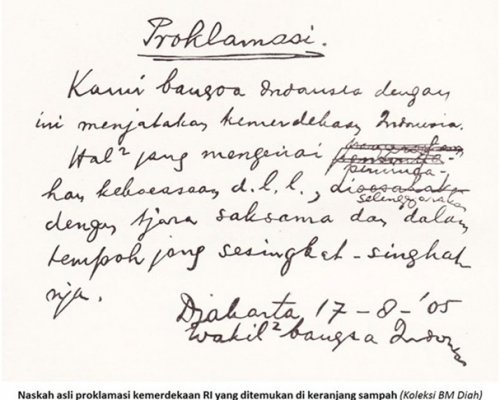 Proklamasi.
Kami bangsa Indonesia dengan
ini menjatakan kemerdekaan Indonesia.
Hal² jang mengenai
pemindahan
kan keboeasaan d.l.l.,
selenggarakan
dengan tjara saksama dan dalam
tempoh jang sesingkat-singkat
nja.
Djakarta 17-8-'05
Wakil² bangsa Indonesia
Naskah asli proklamasi kemerdekaan RI yang ditemukan di keranjang sampah (Koleksi BM Diah)